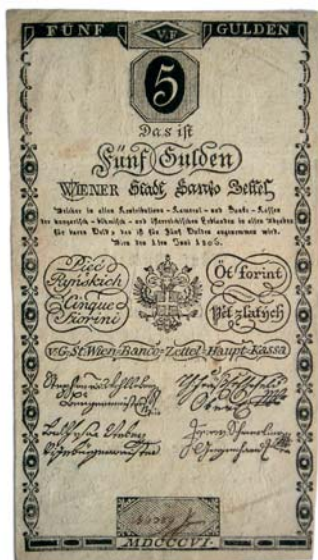 FÜNF V.F GULDEN
5
Das ist
Fünf Gulden
WIENER Stadt Banko Zettel
Welcher in allen Kontributions-Kameral- und Banko-Kassen
der hungarisch-böhmisch- und österreichischen Erblanden in allen Abgaben
für baares Geld, das ist für Fünf Gulden angenommen wird.
Wien den 1ten Juni 1806.
Pięć
Ryńskich
Cinque
Fiorini
Öt forint
Pět zlatých
V.G. St. Wien-Banco-Zettel-Haupt-Kassa
MDCCCVI